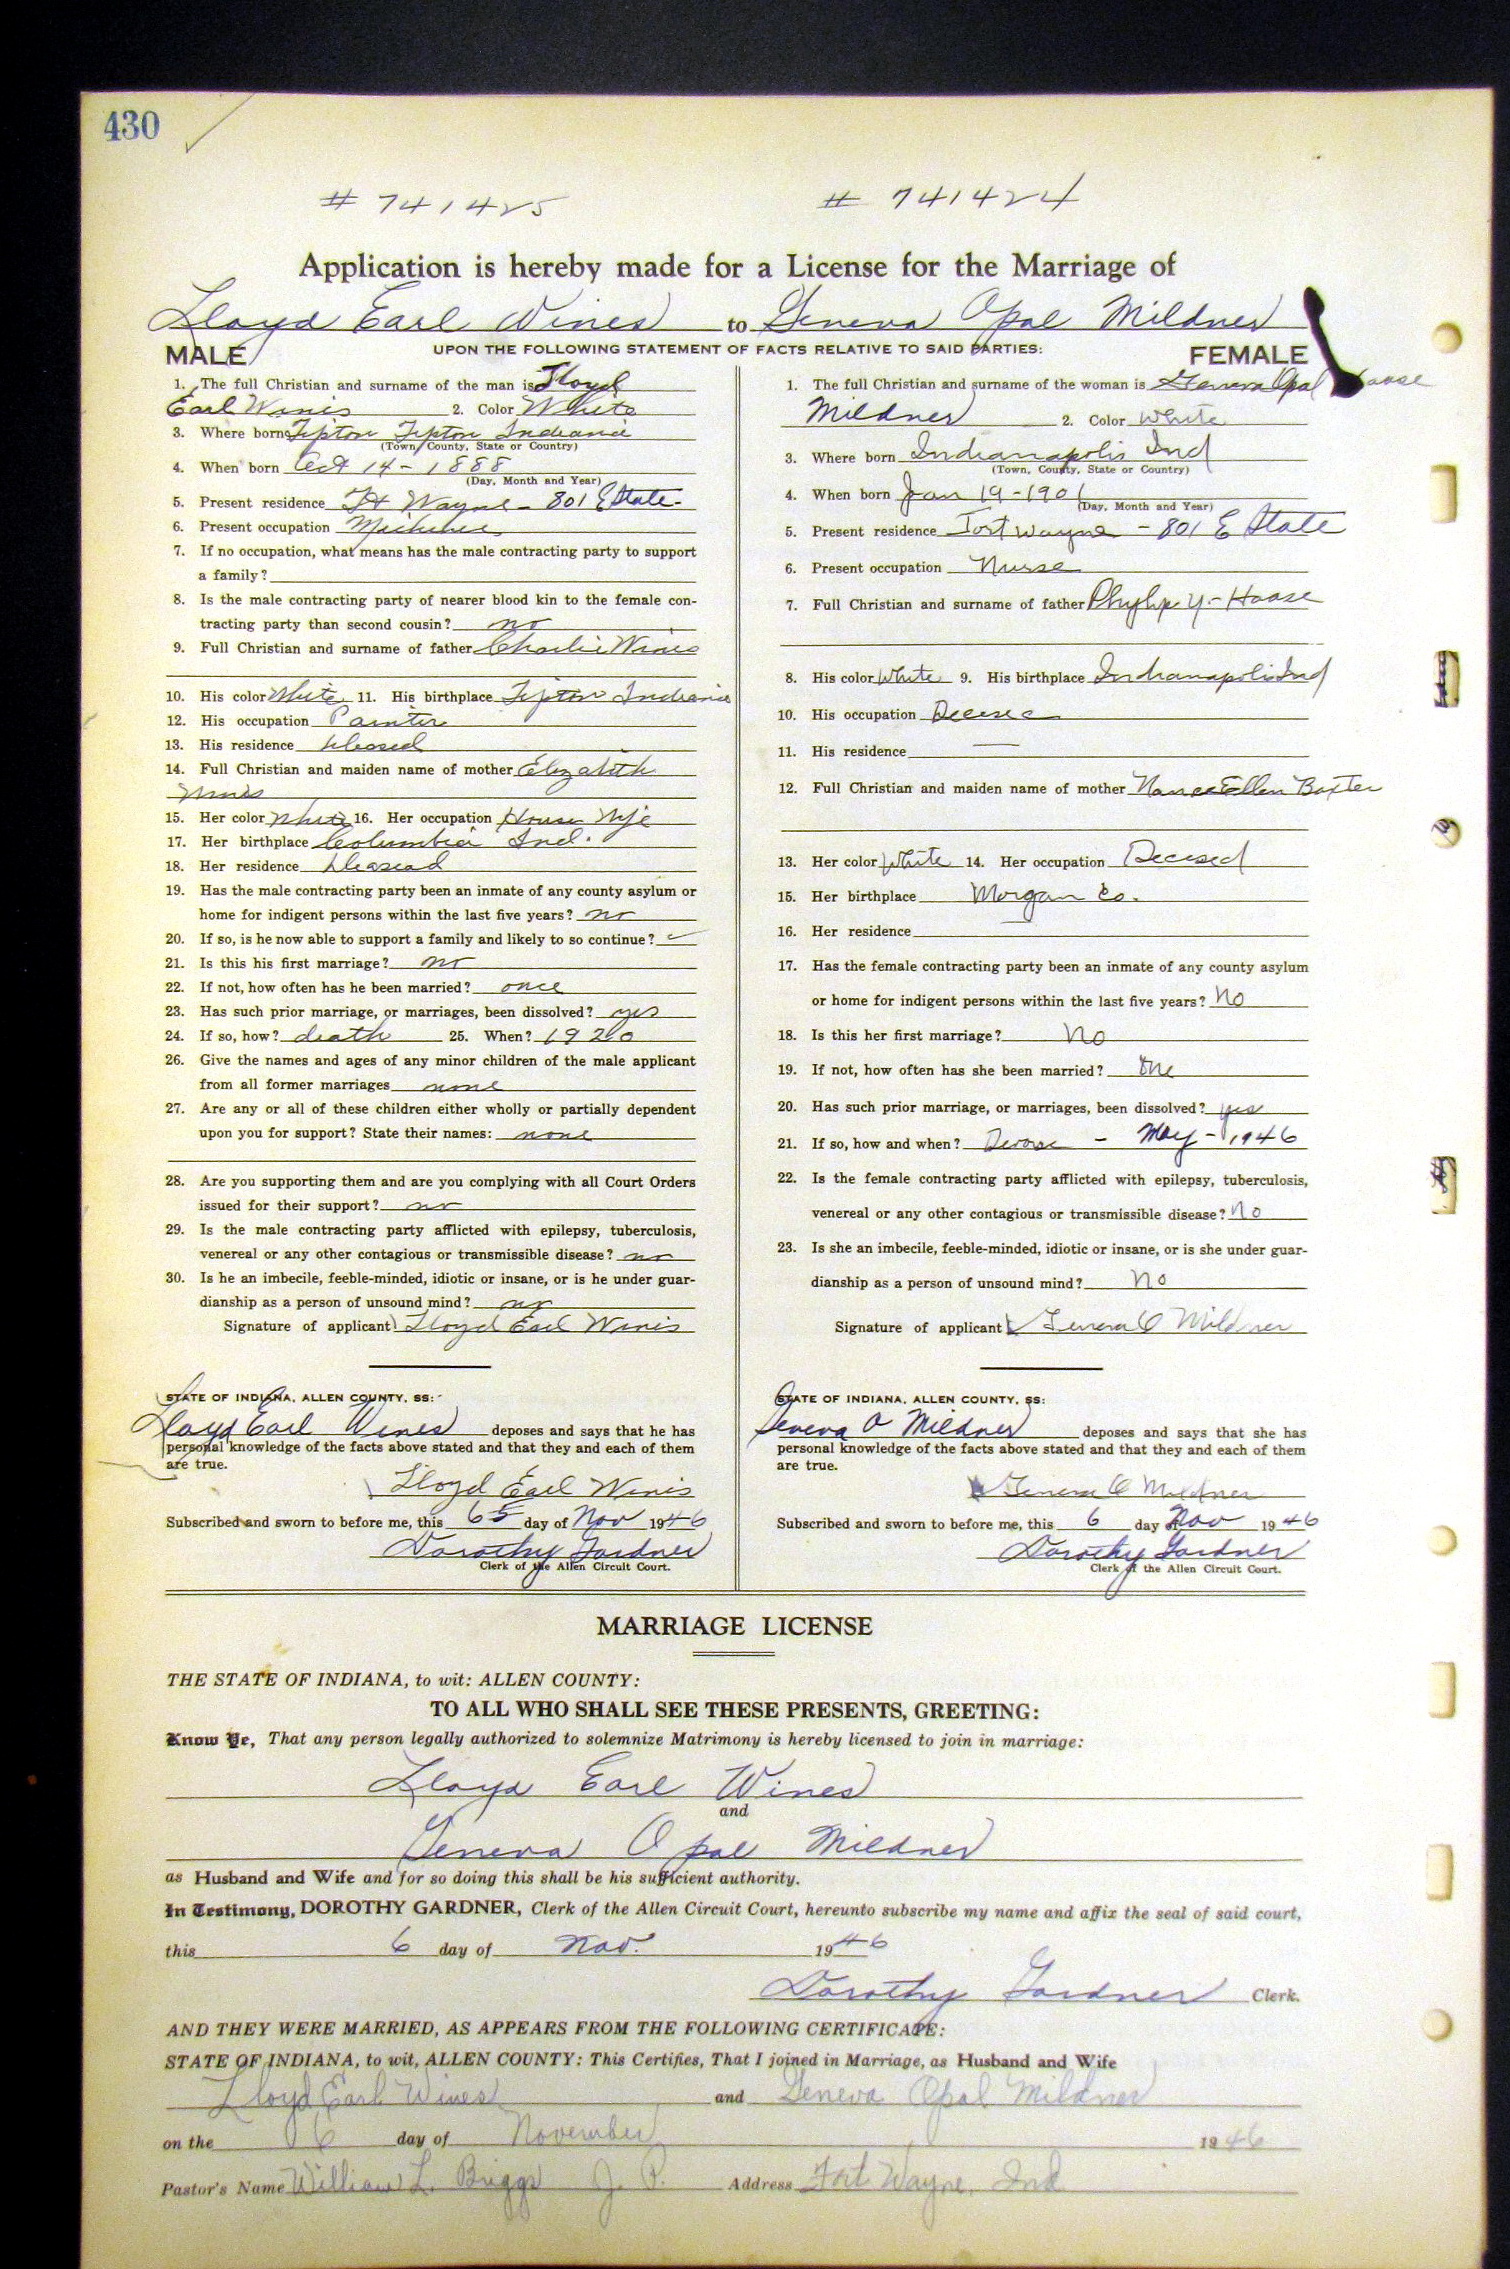 430
# 741425 # 741424
Application is hereby made for a License for the Marriage of
Lloyd Earl Wines to Geneva Opal Mildner
MALE UPON THE FOLLOWING STATEMENT OF FACTS RELATIVE TO SAID PARTIES: FEMALE
1. The full Christian and surname of the man is Lloyd
Earl Winis 2. Color White
3. Where born Tipton Tipton Indiana
(Town, County, State or Country)
4. When born Oct 14 - 1888
(Day, Month and Year)
5. Present residence Ft Wayne - 801 E State -
6. Present occupation
7. If no occupation, what means has the male contracting party to support
a family?
8. Is the male contracting party of nearer blood kin to the female con-
tracting party than second cousin? no
9. Full Christian and surname of father Charlie Winis
10. His color White 11. His birthplace Tipton Indiana
12. His occupation Painter
13. His residence
14. Full Christian and maiden name of mother Elizabith
15. Her color White 16. Her occupation House Wife
17. Her birthplace Columbia Ind.
18. Her residence
19. Has the male contracting party been an inmate of any county asylum or
home for indigent persons within the last five years? no
20. If so, is he now able to support a family and likely to so continue?
21. Is this his first marriage? no
22. If not, how often has he been married? once
23. Has such prior marriage, or marriages, been dissolved? yes
24. If so, how? death 25. When? 1920
26. Give the names and ages of any minor children of the male applicant
from all former marriages none
27. Are any or all of these children either wholly or partially dependent
upon you for support? State their names: none
28. Are you supporting them and are you complying with all Court Orders
issued for their support? no
29. Is the male contracting party afflicted with epilepsy, tuberculosis,
venereal or any other contagious or transmissible disease? no
30. Is he an imbecile, feeble-minded, idiotic or insane, or is he under guar-
dianship as a person of unsound mind? no
Signature of applicant Lloyd Earl Winis
STATE OF INDIANA, ALLEN COUNTY, SS:
Lloyd Earl Wines deposes and says that he has
personal knowledge of the facts above stated and that they and each of them
are true.
Lloyd Earl Winis
Subscribed and sworn to before me, this 6 day of Nov 1946
Dorothy Gardner
Clerk of the Allen Circuit Court.
1. The full Christian and surname of the woman is Geneva Opal Haase
Mildner 2. Color White
3. Where born Indianapolis Ind
(Town, County, State or Country)
4. When born Jan 19 - 1901
(Day, Month and Year)
5. Present residence Fort Wayne - 801 E State
6. Present occupation Nurse
7. Full Christian and surname of father Phylip Y. Haase
8. His color White 9. His birthplace Indianapolis Ind
10. His occupation
11. His residence —
12. Full Christian and maiden name of mother Nance Ellen Baxter
13. Her color White 14. Her occupation Decesed
15. Her birthplace Morgan Co.
16. Her residence
17. Has the female contracting party been an inmate of any county asylum
or home for indigent persons within the last five years? No
18. Is this her first marriage? No
19. If not, how often has she been married? One
20. Has such prior marriage, or marriages, been dissolved? yes
21. If so, how and when? - May - 1946
22. Is the female contracting party afflicted with epilepsy, tuberculosis,
venereal or any other contagious or transmissible disease? No
23. Is she an imbecile, feeble-minded, idiotic or insane, or is she under guar-
dianship as a person of unsound mind? No
Signature of applicant Geneva O Mildner
STATE OF INDIANA, ALLEN COUNTY, SS:
Geneva O Mildner deposes and says that she has
personal knowledge of the facts above stated and that they and each of them
are true.
Geneva O Mildner
Subscribed and sworn to before me, this 6 day of Nov 1946
Dorothy Gardner
Clerk of the Allen Circuit Court.
MARRIAGE LICENSE
THE STATE OF INDIANA, to wit: ALLEN COUNTY:
TO ALL WHO SHALL SEE THESE PRESENTS, GREETING:
Know Ye, That any person legally authorized to solemnize Matrimony is hereby licensed to join in marriage:
Lloyd Earl Wines
and
Geneva Opal Mildner
as Husband and Wife and for so doing this shall be his sufficient authority.
In Testimony, DOROTHY GARDNER, Clerk of the Allen Circuit Court, hereunto subscribe my name and affix the seal of said court,
this 6 day of Nov. 1946
Dorothy Gardner Clerk.
AND THEY WERE MARRIED, AS APPEARS FROM THE FOLLOWING CERTIFICATE:
STATE OF INDIANA, to wit, ALLEN COUNTY: This Certifies, That I joined in Marriage, as Husband and Wife
Lloyd Earl Wines and Geneva Opal Mildner
on the 6 day of November 1946
Pastor's Name William L. Briggs J. P. Address Fort Wayne, Ind